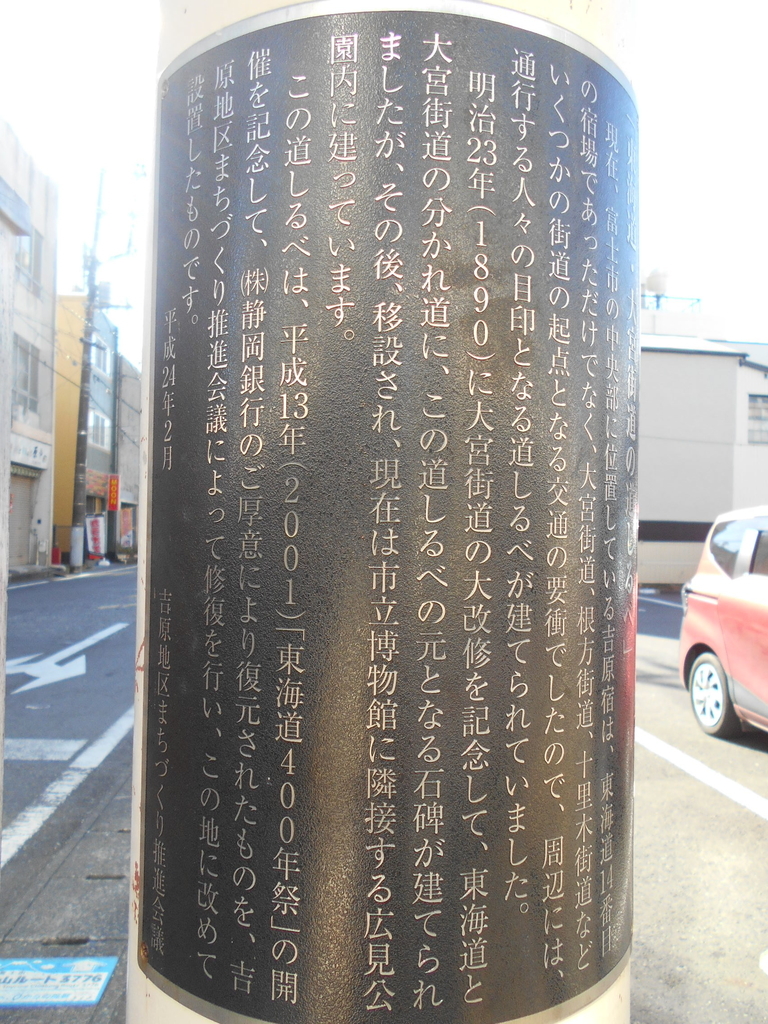 「東海道・大宮街道の道しるべ」
現在、富士市の中央部に位置している吉原宿は、東海道14番目
の宿場であっただけでなく、大宮街道、根方街道、十里木街道など
いくつかの街道の起点となる交通の要衝でしたので、周辺には、
通行する人々の目印となる道しるべが建てられていました。
明治23年(1890)に大宮街道の大改修を記念して、東海道と
大宮街道の分かれ道に、この道しるべの元となる石碑が建てられ
ましたが、その後、移設され、現在は市立博物館に隣接する広見公
園内に建っています。
この道しるべは、平成13年(2001)「東海道400年祭」の開
催を記念して、㈱静岡銀行のご厚意により復元されたものを、吉
原地区まちづくり推進会議によって修復を行い、この地に改めて
設置したものです。
平成24年2月
吉原地区まちづくり推進会議
山ルート3776